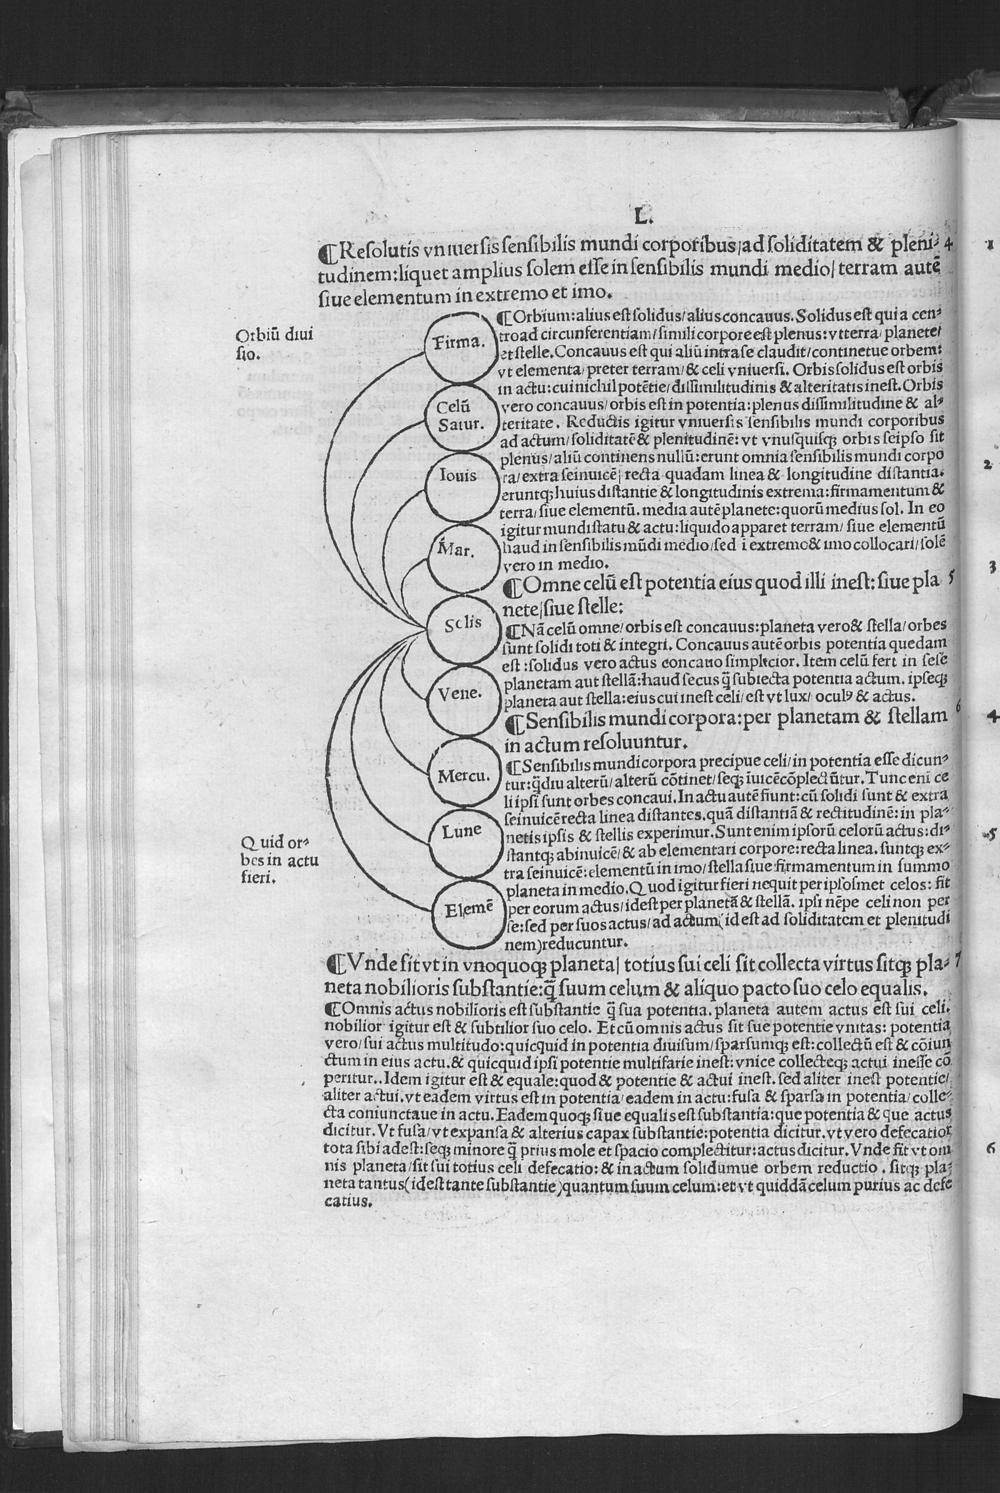 L.
¶Resolutis vniuersis sensibilis mundi corporibus/ad soliditatem & pleni- 4
tudinem:liquet amplius solem esse in sensibilis mundi medio/terram autē
siue elementum in extremo et imo.
Orbiū diui
sio.
¶Orbium:alius est solidus/alius concauus.Solidus est qui a cen-
tro ad circunferentiam/simili corpore est plenus:vt terra/planete/
et stelle.Concauus est qui aliū intra se claudit/continetue orbem:
vt elementa/preter terram/& celi vniuersi. Orbis solidus est orbis
in actu:cui nichil potētie/dissimilitudinis & alteritatis inest.Orbis
vero concauus/orbis est in potentia:plenus dissimilitudine & al-
teritate. Reductis igitur vniuersis sensibilis mundi corporibus
ad actum/soliditatē & plenitudinē:vt vnusquisq; orbis seipso sit
plenus/aliū continens nullū:erunt omnia sensibilis mundi corpo
ra/extra seinuicē/recta quadam linea & longitudine distantia.
eruntq; huius distantie & longitudinis extrema:firmamentum &
terra/siue elementū. media autē planete:quorū medius sol. In eo
igitur mundi statu & actu:liquido apparet terram/siue elementū
haud in sensibilis mūdi medio/sed ī extremo & imo collocari/solē
vero in medio.
Firma.
Celū
Satur.
Iouis
Mar.
Solis
Vene.
Mercu.
Lune
Elemē
¶Omne celū est potentia eius quod illi inest:siue pla 5
nete/siue stelle:
¶Nā celū omne/orbis est concauus:planeta vero & stella/orbes
sunt solidi toti & integri. Concauus autē orbis potentia quedam
est:solidus vero actus concauo simplicior. Item celū fert in sese
planetam aut stellā:haud secus q̄ subiecta potentia actum. ipseq;
planeta aut stella:eius cui inest celi/est vt lux/ocul9 & actus.
¶Sensibilis mundi corpora:per planetam & stellam 6
in actum resoluuntur.
¶Sensibilis mundi corpora precipue celi/in potentia esse dicun-
tur:q̄diu alterū/alterū cōtinet/seq; īuicē cōplectūtur.Tunc eni ce
li ipsi sunt orbes concaui.In actu autē fiunt:cū solidi sunt & extra
seinuicē recta linea distantes.quā distantiā & rectitudinē:in pla-
netis ipsis & stellis experimur.Sunt enim ipsorū celorū actus:di-
stantq; abinuicē/& ab elementari corpore:recta linea. suntq; ex-
tra seinuicē:elementū in imo/stella siue firmamentum in summo
planeta in medio.Quod igitur fieri nequit per ipsosmet celos: fit
per eorum actus/idest per planetā & stellā. ipsi nēpe celi non per
se:sed per suos actus/ad actum(id est ad soliditatem et plenitudi
nem)reducuntur.
Quid or-
bes in actu
fieri.
¶Vnde fit vt in vnoquoq; planeta/totius sui celi sit collecta virtus sitq; pla- 7
neta nobilioris substantie:q̄ suum celum & aliquo pacto suo celo equalis.
¶Omnis actus nobilioris est substantie q̄ sua potentia. planeta autem actus est sui celi.
nobilior igitur est & subtilior suo celo. Et cū omnis actus sit sue potentie vnitas: potentia
vero/sui actus multitudo:quicquid in potentia diuisum/sparsumq; est:collectū est & cōiun
ctum in eius actu.& quicquid ipsi potentie multifarie inest:vnice collecteq; actui inesse cō
peritur..Idem igitur est & equale:quod & potentie & actui inest.sed aliter inest potentie/
aliter actui.vt eadem virtus est in potentia/eadem in actu:fusa & sparsa in potentia/colle-
cta coniunctaue in actu.Eadem quoq; siue equalis est substantia:que potentia & que actus
dicitur.Vt fusa/vt expansa & alterius capax substantie:potentia dicitur.vt vero defecatior
tota sibi adest:seq; minore q̄ prius mole et spacio complectitur:actus dicitur.Vnde fit vt om
nis planeta/sit sui totius celi defecatio:& in actum solidumue orbem reductio. sitq; pla-
neta tantus(idest tante substantie)quantum suum celum:et vt quiddā celum purius ac defe
catius.
1
2
3
4
5
6